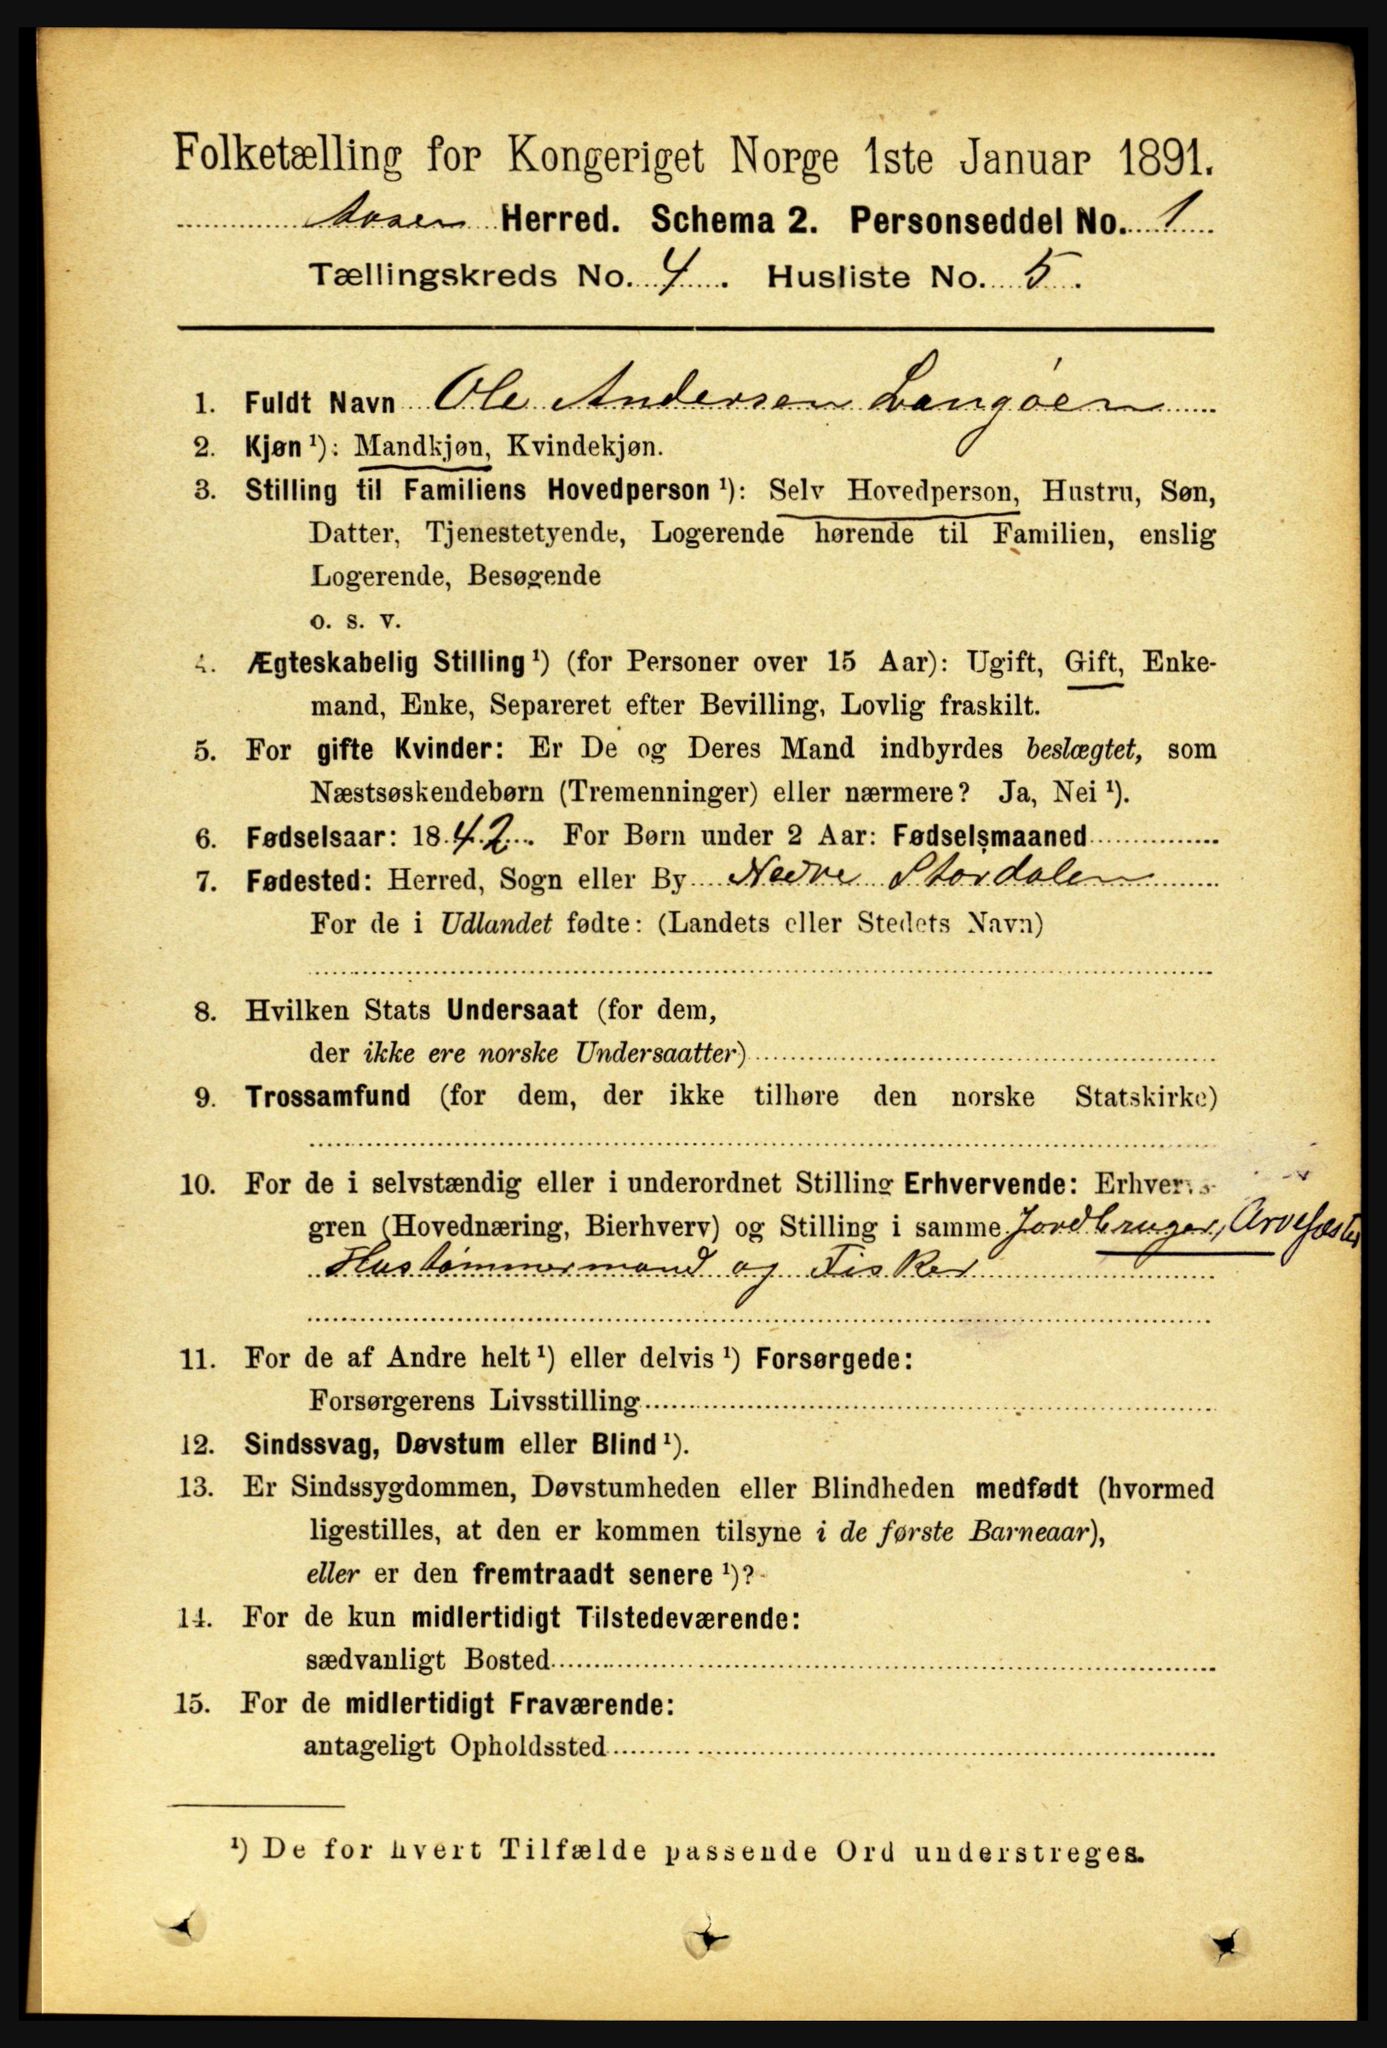 Folketælling for Kongeriget Norge 1ste Januar 1891.
Aasen Herred. Schema 2. Personseddel No. 1
Tællingskreds No. 4. Husliste No. 5.
1. Fuldt Navn Ole Andersen Langøen
2. Kjøn ¹): Mandkjøn, Kvindekjøn.
3. Stilling til Familiens Hovedperson ¹): Selv Hovedperson, Hustru, Søn,
Datter, Tjenestetyende, Logerende hørende til Familien, enslig
Logerende, Besøgende
o. s. v.
4. Ægteskabelig Stilling ¹) (for Personer over 15 Aar): Ugift, Gift, Enke-
mand, Enke, Separeret efter Bevilling, Lovlig fraskilt.
5. For gifte Kvinder: Er De og Deres Mand indbyrdes beslægtet, som
Næstsøskendebørn (Tremenninger) eller nærmere? Ja, Nei ¹).
6. Fødselsaar: 1842. For Børn under 2 Aar: Fødselsmaaned
7. Fødested: Herred, Sogn eller By Nedre Stordalen
For de i Udlandet fødte: (Landets eller Stedets Navn)
8. Hvilken Stats Undersaat (for dem,
der ikke ere norske Undersaatter)
9. Trossamfund (for dem, der ikke tilhøre den norske Statskirke)
10. For de i selvstændig eller i underordnet Stilling Erhvervende: Erhvervs-
gren (Hovednæring, Bierhverv) og Stilling i samme Jordbruger, Arvefæster
Hustømmermand og Fisker
11. For de af Andre helt ¹) eller delvis ¹) Forsørgede:
Forsørgerens Livsstilling
12. Sindssvag, Døvstum eller Blind ¹).
13. Er Sindssygdommen, Døvstumheden eller Blindheden medfødt (hvormed
ligestilles, at den er kommen tilsyne i de første Barneaar),
eller er den fremtraadt senere ¹)?
14. For de kun midlertidigt Tilstedeværende:
sædvanligt Bosted
15. For de midlertidigt Fraværende:
antageligt Opholdssted
¹) De for hvert Tilfælde passende Ord understreges.